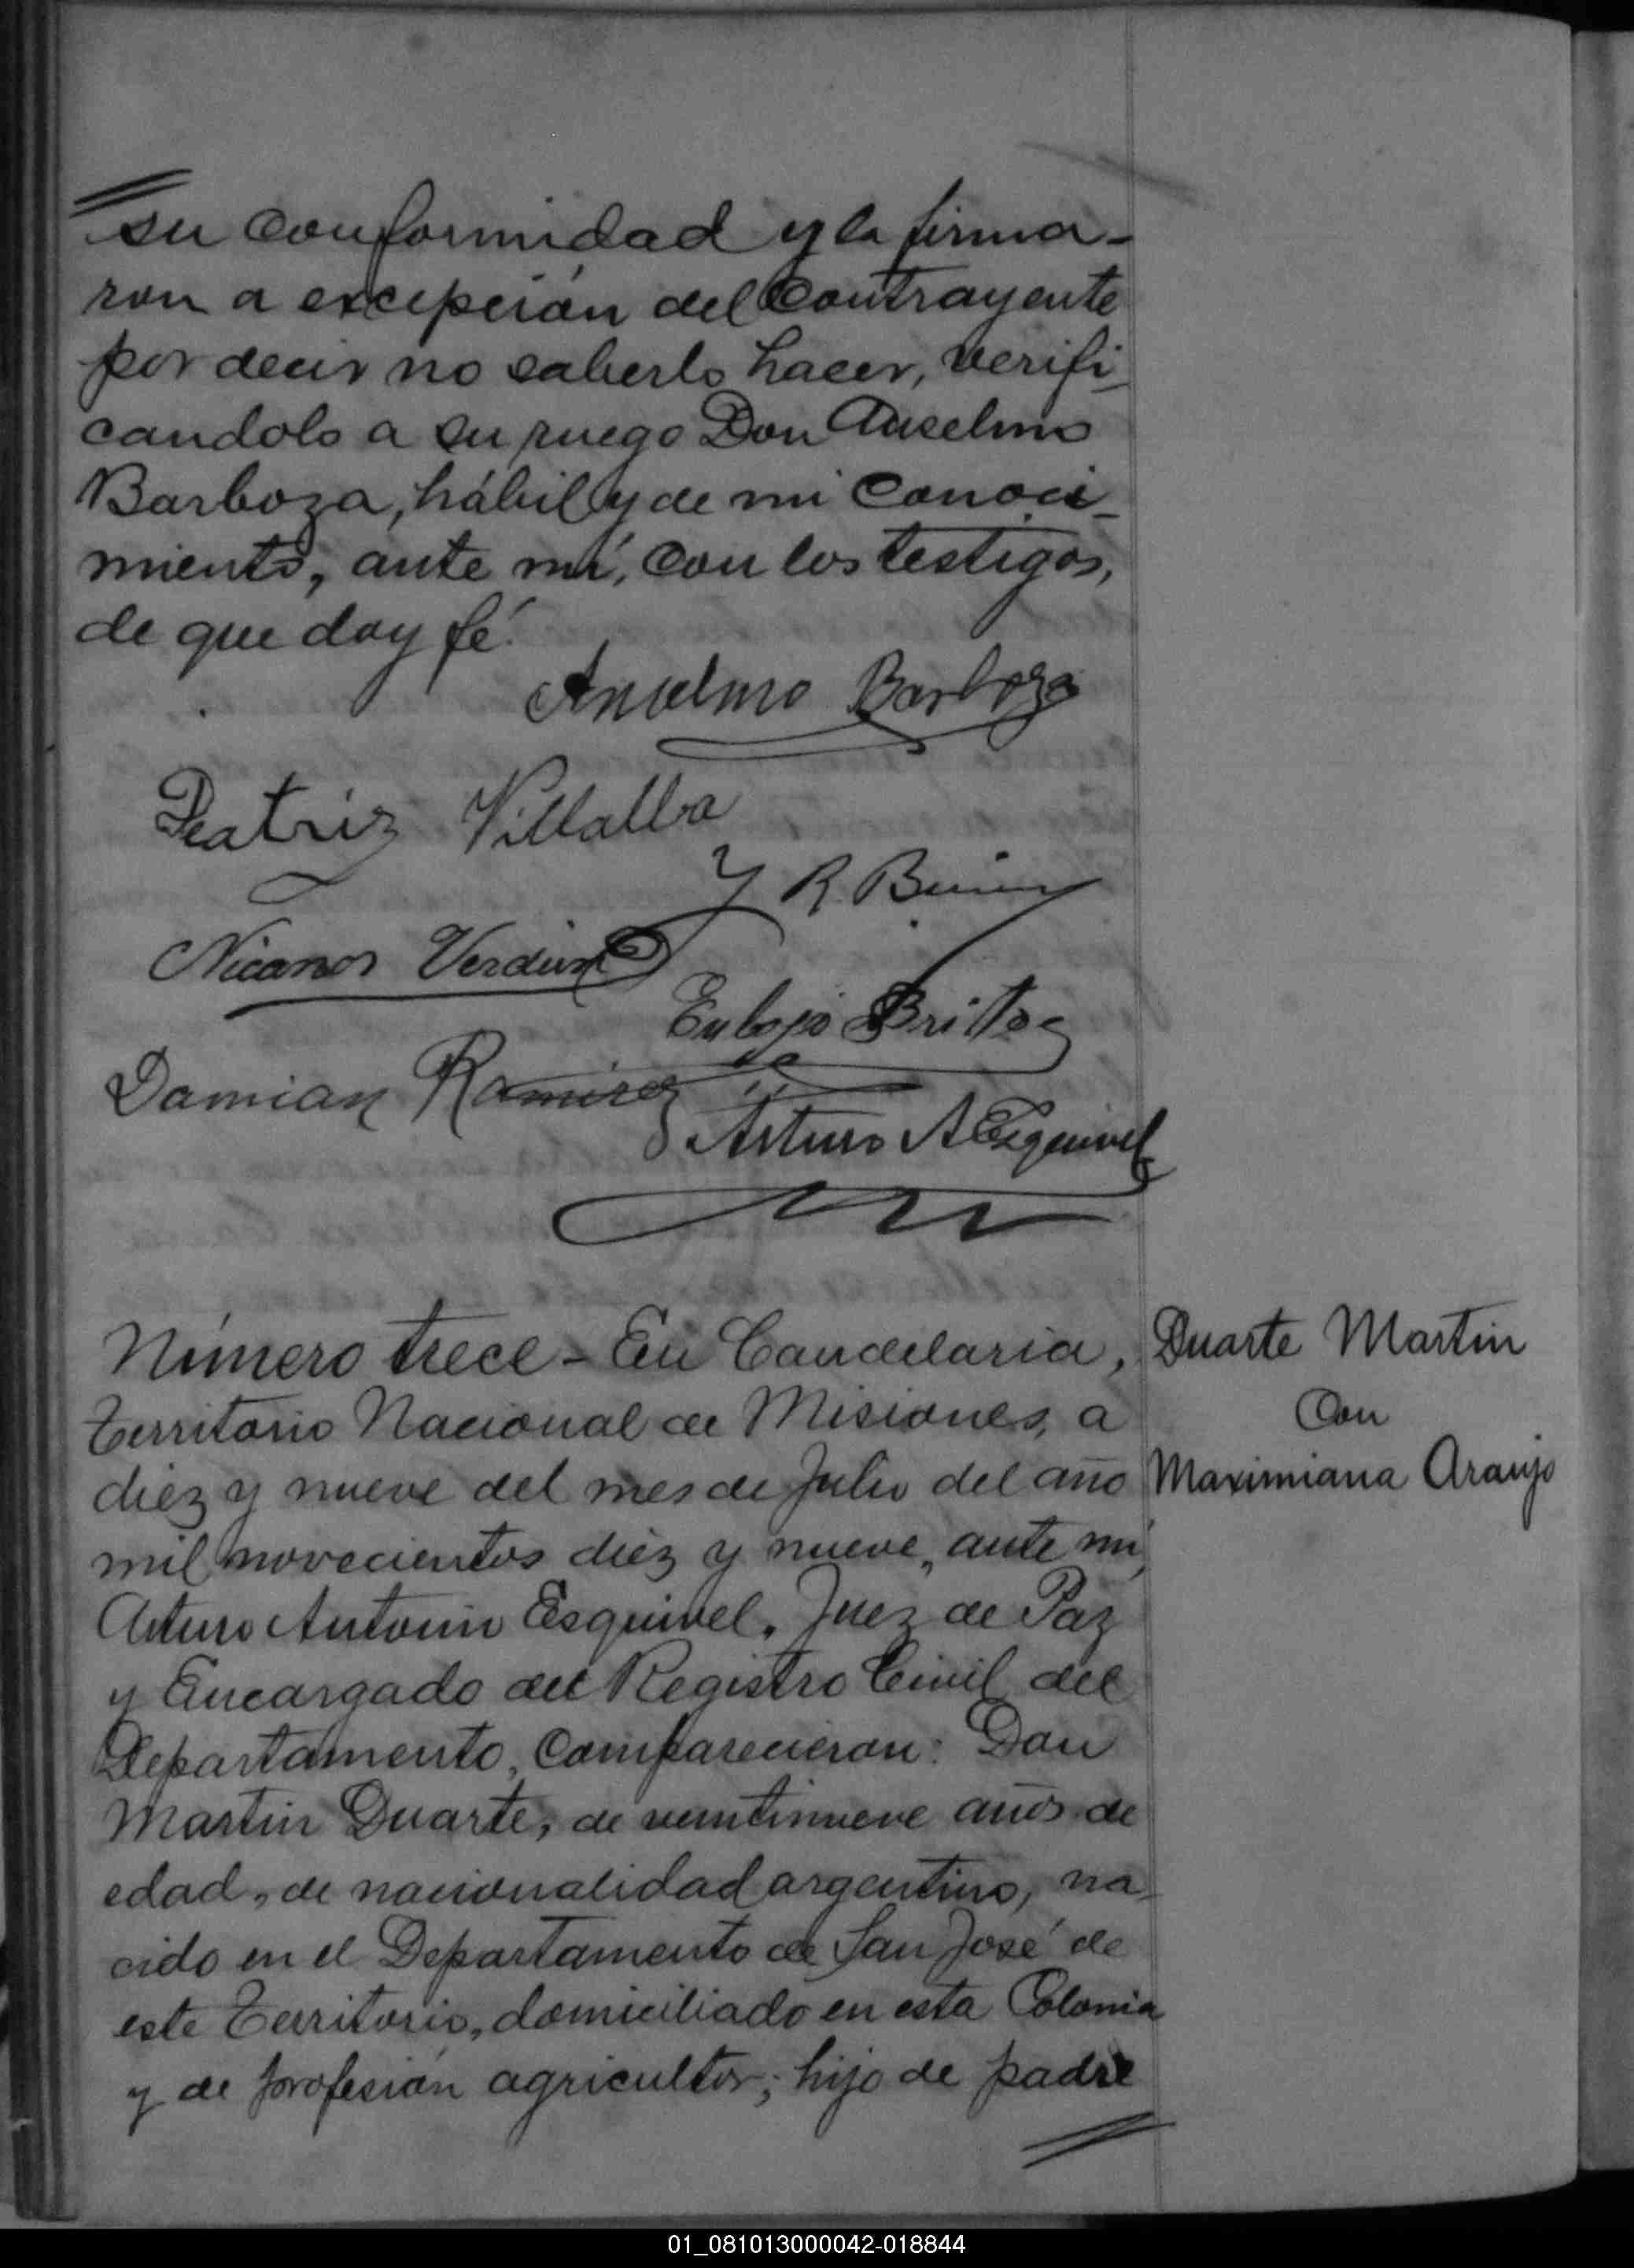 su conformidad y la firma-
ron a excepción del Contrayente
por decir no saberlo hacer, verifi-
candolo a su ruego Don Anselmo
Barboza, hábil y de mi conoci-
miento, ante mí, con los testigos,
de que doy fé.
Anselmo Barboza
Beatriz Villalba
Y R.
Nicanor
Eulojio Britto
Damian Ramirez
Arturo A Esquivel
Número trece - En Candelaria,
Duarte Martin
Territorio Nacional de Misiones, a
Con
diez y nueve del mes de Julio del año
Maximiana Araujo
mil novecientos diez y nueve, ante mí,
Arturo Antonio Esquivel, Juez de Paz
y Encargado del Registro Civil del
Departamento, Comparecieron: Don
Martin Duarte, de veintinueve años de
edad, de nacionalidad argentino, na-
cido en el Departamento de San José de
este Territorio, domiciliado en esta Colonia
y de profesión agricultor; hijo de padre
01_081013000042-018844